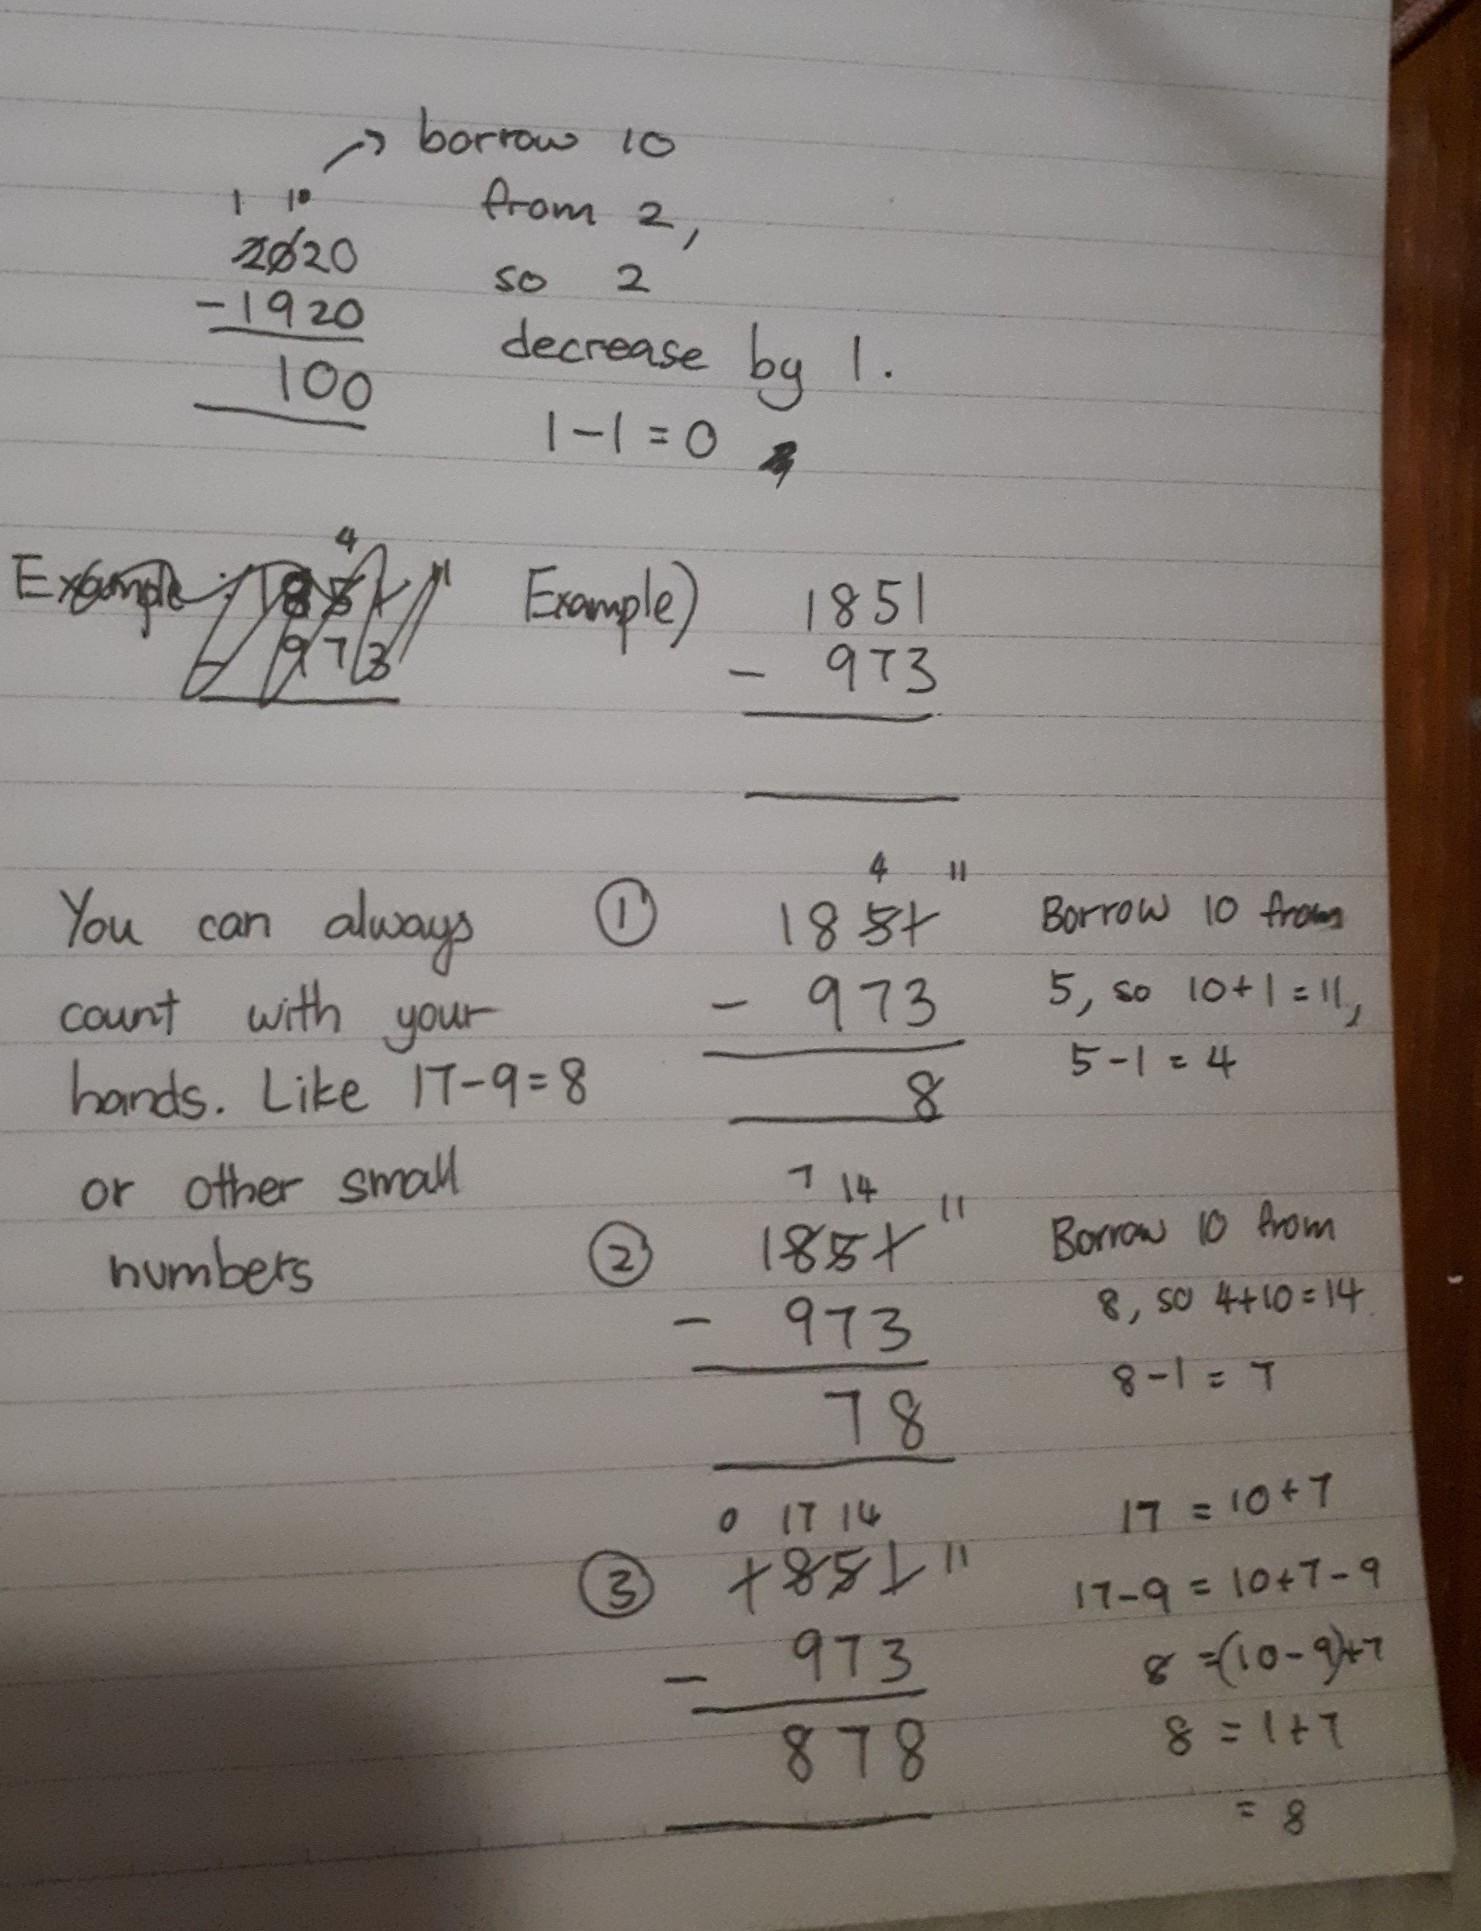 → borrow 10
from 2,
so 2
decrease by 1.
1-1=0
1 10
2020
-1920
100
Example: 4
1851 11
- 973
Example) 1851
- 973
You can always
count with your
hands. Like 17-9=8
or other small
numbers
① 4 11
1851
- 973
8
Borrow 10 from
5, so 10+1=11,
5-1=4
② 7 14 11
1851
- 973
78
Borrow 10 from
8, so 4+10=14
8-1=7
③ 0 17 14 11
1851
- 973
878
17=10+7
17-9=10+7-9
8=(10-9)+7
8=1+7
=8